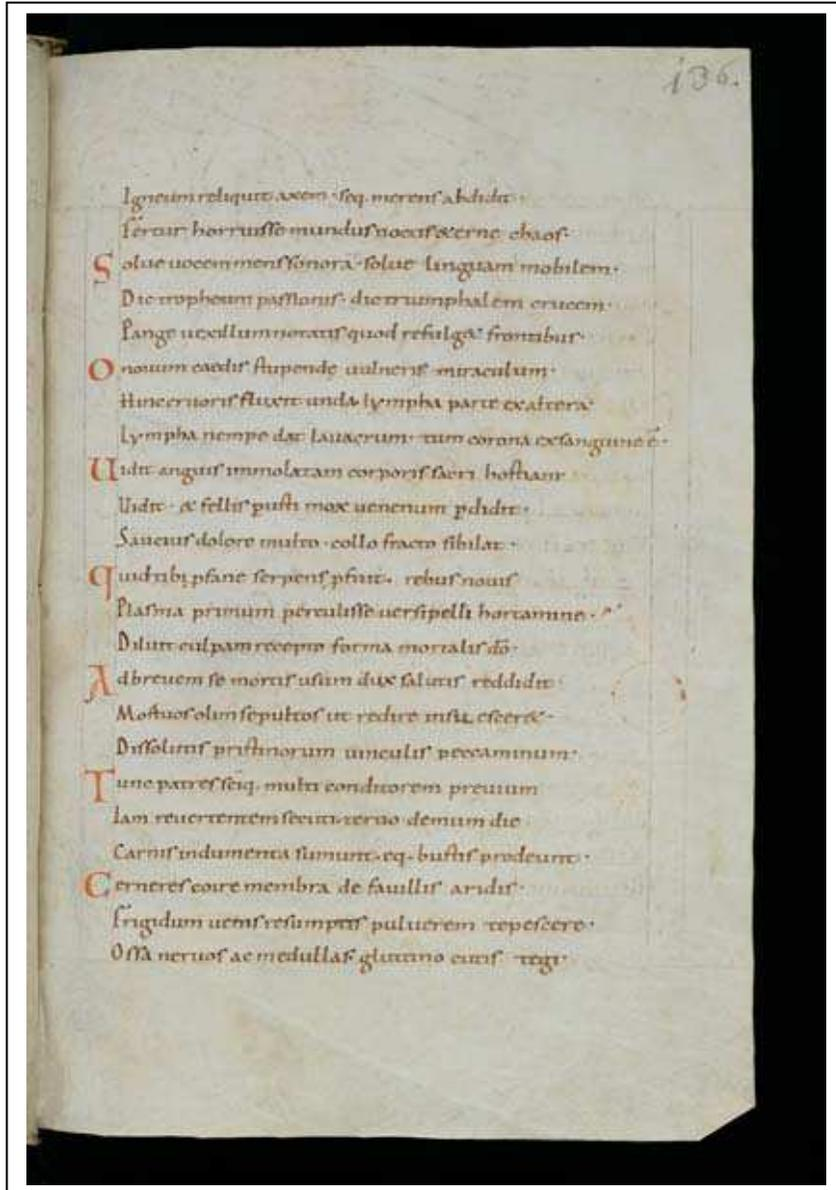 136.
Igneum reliquit axem · seq. merens abdidit ·
Fertur horruisse mundus noctis &erne chaos ·
Solue uocem mens sonorā · solue linguam mobilem ·
Dic tropheum passionis · dic triumphalem crucem ·
Pange uexillum notatis quod refulg& frontibus ·
O nouum caedis stupende uulneris miraculum ·
Hinc cruoris fluxit unda · lympha parte ex altera
Lympha nempe dat lauacrum · tum corona ex sanguine ē ·
Uidit anguis immolatam corporis sacri hostiam
Uidit · & fellis pusti mox uenenum pdidit ·
Saucius dolore multo · collo fracto sibilat ·
Quid tibi pfane serpens pfuit · rebus nouis
Plasma primum perculisse uersipelli hortamine ·
Diluit culpam recepto forma mortalis dō ·
Ad breuem se mortis usum dux salutis reddidit ·
Mortuos olim sepultos ut redire insuescer& ·
Dissolutis pristinorum uinculis peccaminum ·
Tunc patres sciq. multi conditorem preuium
Iam reuertentem secuti · tertio demum die
Carnis indumenta sumunt · eq. bustis prodeunt ·
Cerneres coire membra de fauillis aridis ·
Frigidum uenis resumptis puluerem tepescere ·
Ossa neruos ac medullas glutino cutis tegi ·